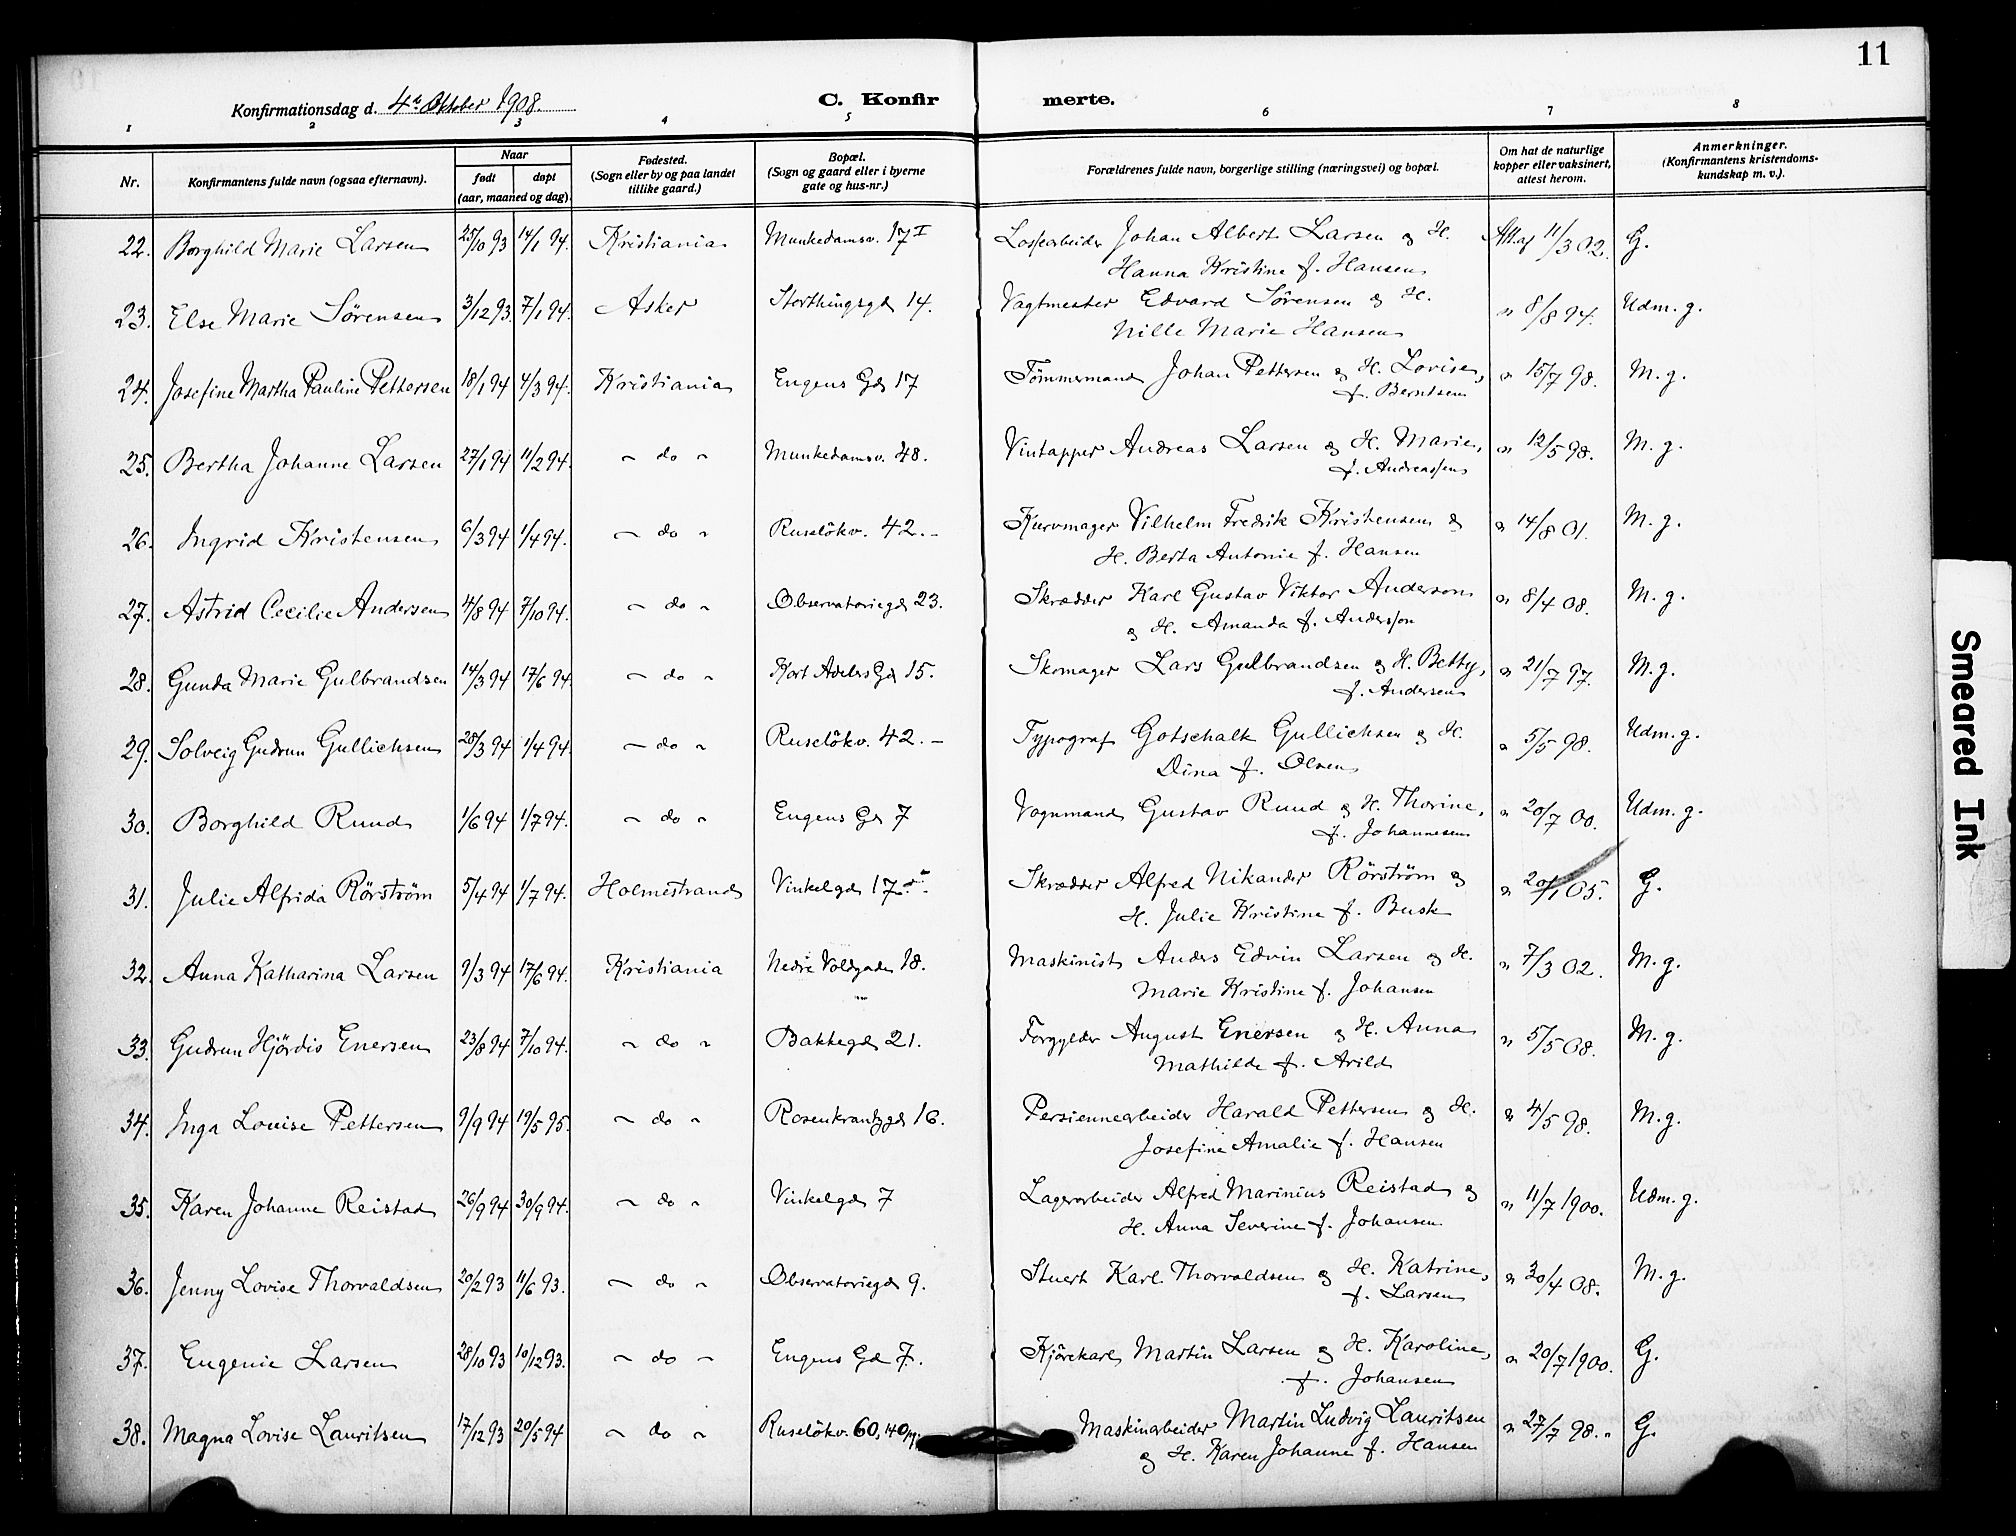 11
Konfirmationsdag d. 4de Oktober 1908.
C. Konfir merte.
1 2 3 4 5 6 7 8
Nr. Konfirmantens fulde navn (ogsaa efternavn). Naar født døpt (aar, maaned og dag). Fødested. (Sogn eller by og paa landet tillike gaard.) Bopæl. (Sogn og gaard eller i byerne gate og hus-nr.) Forældrenes fulde navn, borgerlige stilling (næringsvei) og bopæl. Om hat de naturlige kopper eller vaksinert, attest herom. Anmerkninger. (Konfirmantens kristendomskundskap m. v.).
22. Borghild Marie Larsen 25/10 93 14/1 94. Kristiania Munkedamsv. 17 I Lossearbeider Johan Albert Larsen og H. Att. af 11/3 02. G.
Hanna Kristine f. Hansen
23. Else Marie Sörensen 3/12 93. 7/1 94. Asker Storthingsgd 14. Vagtmester Edvard Sörensen og H. " 8/8 94. Udm. g.
Nille Marie Hansen
24. Josefine Martha Pauline Pettersen 18/1 94 4/3 94. Kristiania Engens Gd 17 Tömmermand Johan Pettersen og H. Lovise, " 15/7 98. M. g.
f. Berntsen
25. Bertha Johanne Larsen 27/1 94 11/2 94. - do - Munkedamsv. 48. Vintapper Andreas Larsen og H. Marie, " 12/5 98. M. g.
f. Andreassen
26. Ingrid Kristensen 6/3 94 1/4 94. - do - Ruselökv. 42. - Kurvmager Vilhelm Fredrik Kristensen og " 14/8 01. M. g.
H. Berta Antonie f. Hansen
27. Astrid Cecilie Andersen 4/8 94 7/10 94. - do - Observatoriegd 23. Skrædder Karl Gustav Viktor Anderson " 8/4 08. M. g.
og H. Amanda f. Andersson
28. Gunda Marie Gulbrandsen 14/3 94 17/6 94. - do - Kort Adelers Gd 15. Skomager Lars Gulbrandsen og H. Betty, " 21/7 97. M. g.
f. Andersen
29. Solveig Gudrun Gullichsen 28/3 94 1/4 94. - do - Ruselökv. 42. - Typograf Gotschalk Gullichsen og H. " 5/5 98. Udm. g.
Dina f. Olsen
30. Borghild Ruud 1/6 94 1/7 94. - do - Engens Gd 7 Vognmand Gustav Ruud og H. Thorine, " 20/7 00. Udm. g.
f. Johannesen
31. Julie Alfrida Rörström 5/4 94 1/7 94. Holmestrand Vinkelgd 17 Skrædder Alfred Nikander Rörström og " 20/1 05. G.
H. Julie Kristine f. Busk
32. Anna Katharina Larsen 9/3 94 17/6 94. Kristiania Nedre Voldgade 18. Maskinist Anders Edvin Larsen og H. " 7/3 02. M. g.
Marie Kristine f. Johansen
33. Gudrun Hjördis Enersen 23/8 94 7/10 94. - do - Bakkegd 21. Forgylder August Enersen og H. Anna " 5/5 08. M. g.
Mathilde f. Arild
34. Inga Louise Pettersen 9/9 94 19/5 95. - do - Rosenkrantzgd 16. Persiennearbeider Harald Pettersen og H. " 4/5 98. M. g.
Josefine Amalie f. Hansen
35. Karen Johanne Reistad 26/9 94 30/9 94. - do - Vinkelgd 7 Lagerarbeider Alfred Marinius Reistad og " 11/7 1900. Udm. g.
H. Anna Severine f. Johansen
36. Jenny Lovise Thorvaldsen 20/2 93 11/6 93. - do - Observatoriegd 9. Stuert Karl Thorvaldsen og H. Katrine, " 30/4 08. M. g.
f. Larsen
37. Eugenie Larsen 28/10 93 10/12 93. - do - Engens Gd 7. Kjörekarl Martin Larsen og H. Karoline, " 20/7 1900. G.
f. Johansen
38. Magna Lovise Lauritsen 17/12 93 20/5 94 - do - Ruselökv. 60, Maskinarbeider Martin Ludvig Lauritsen " 27/7 98. G.
og H. Karen Johanne f. Hansen
Smeared Ink